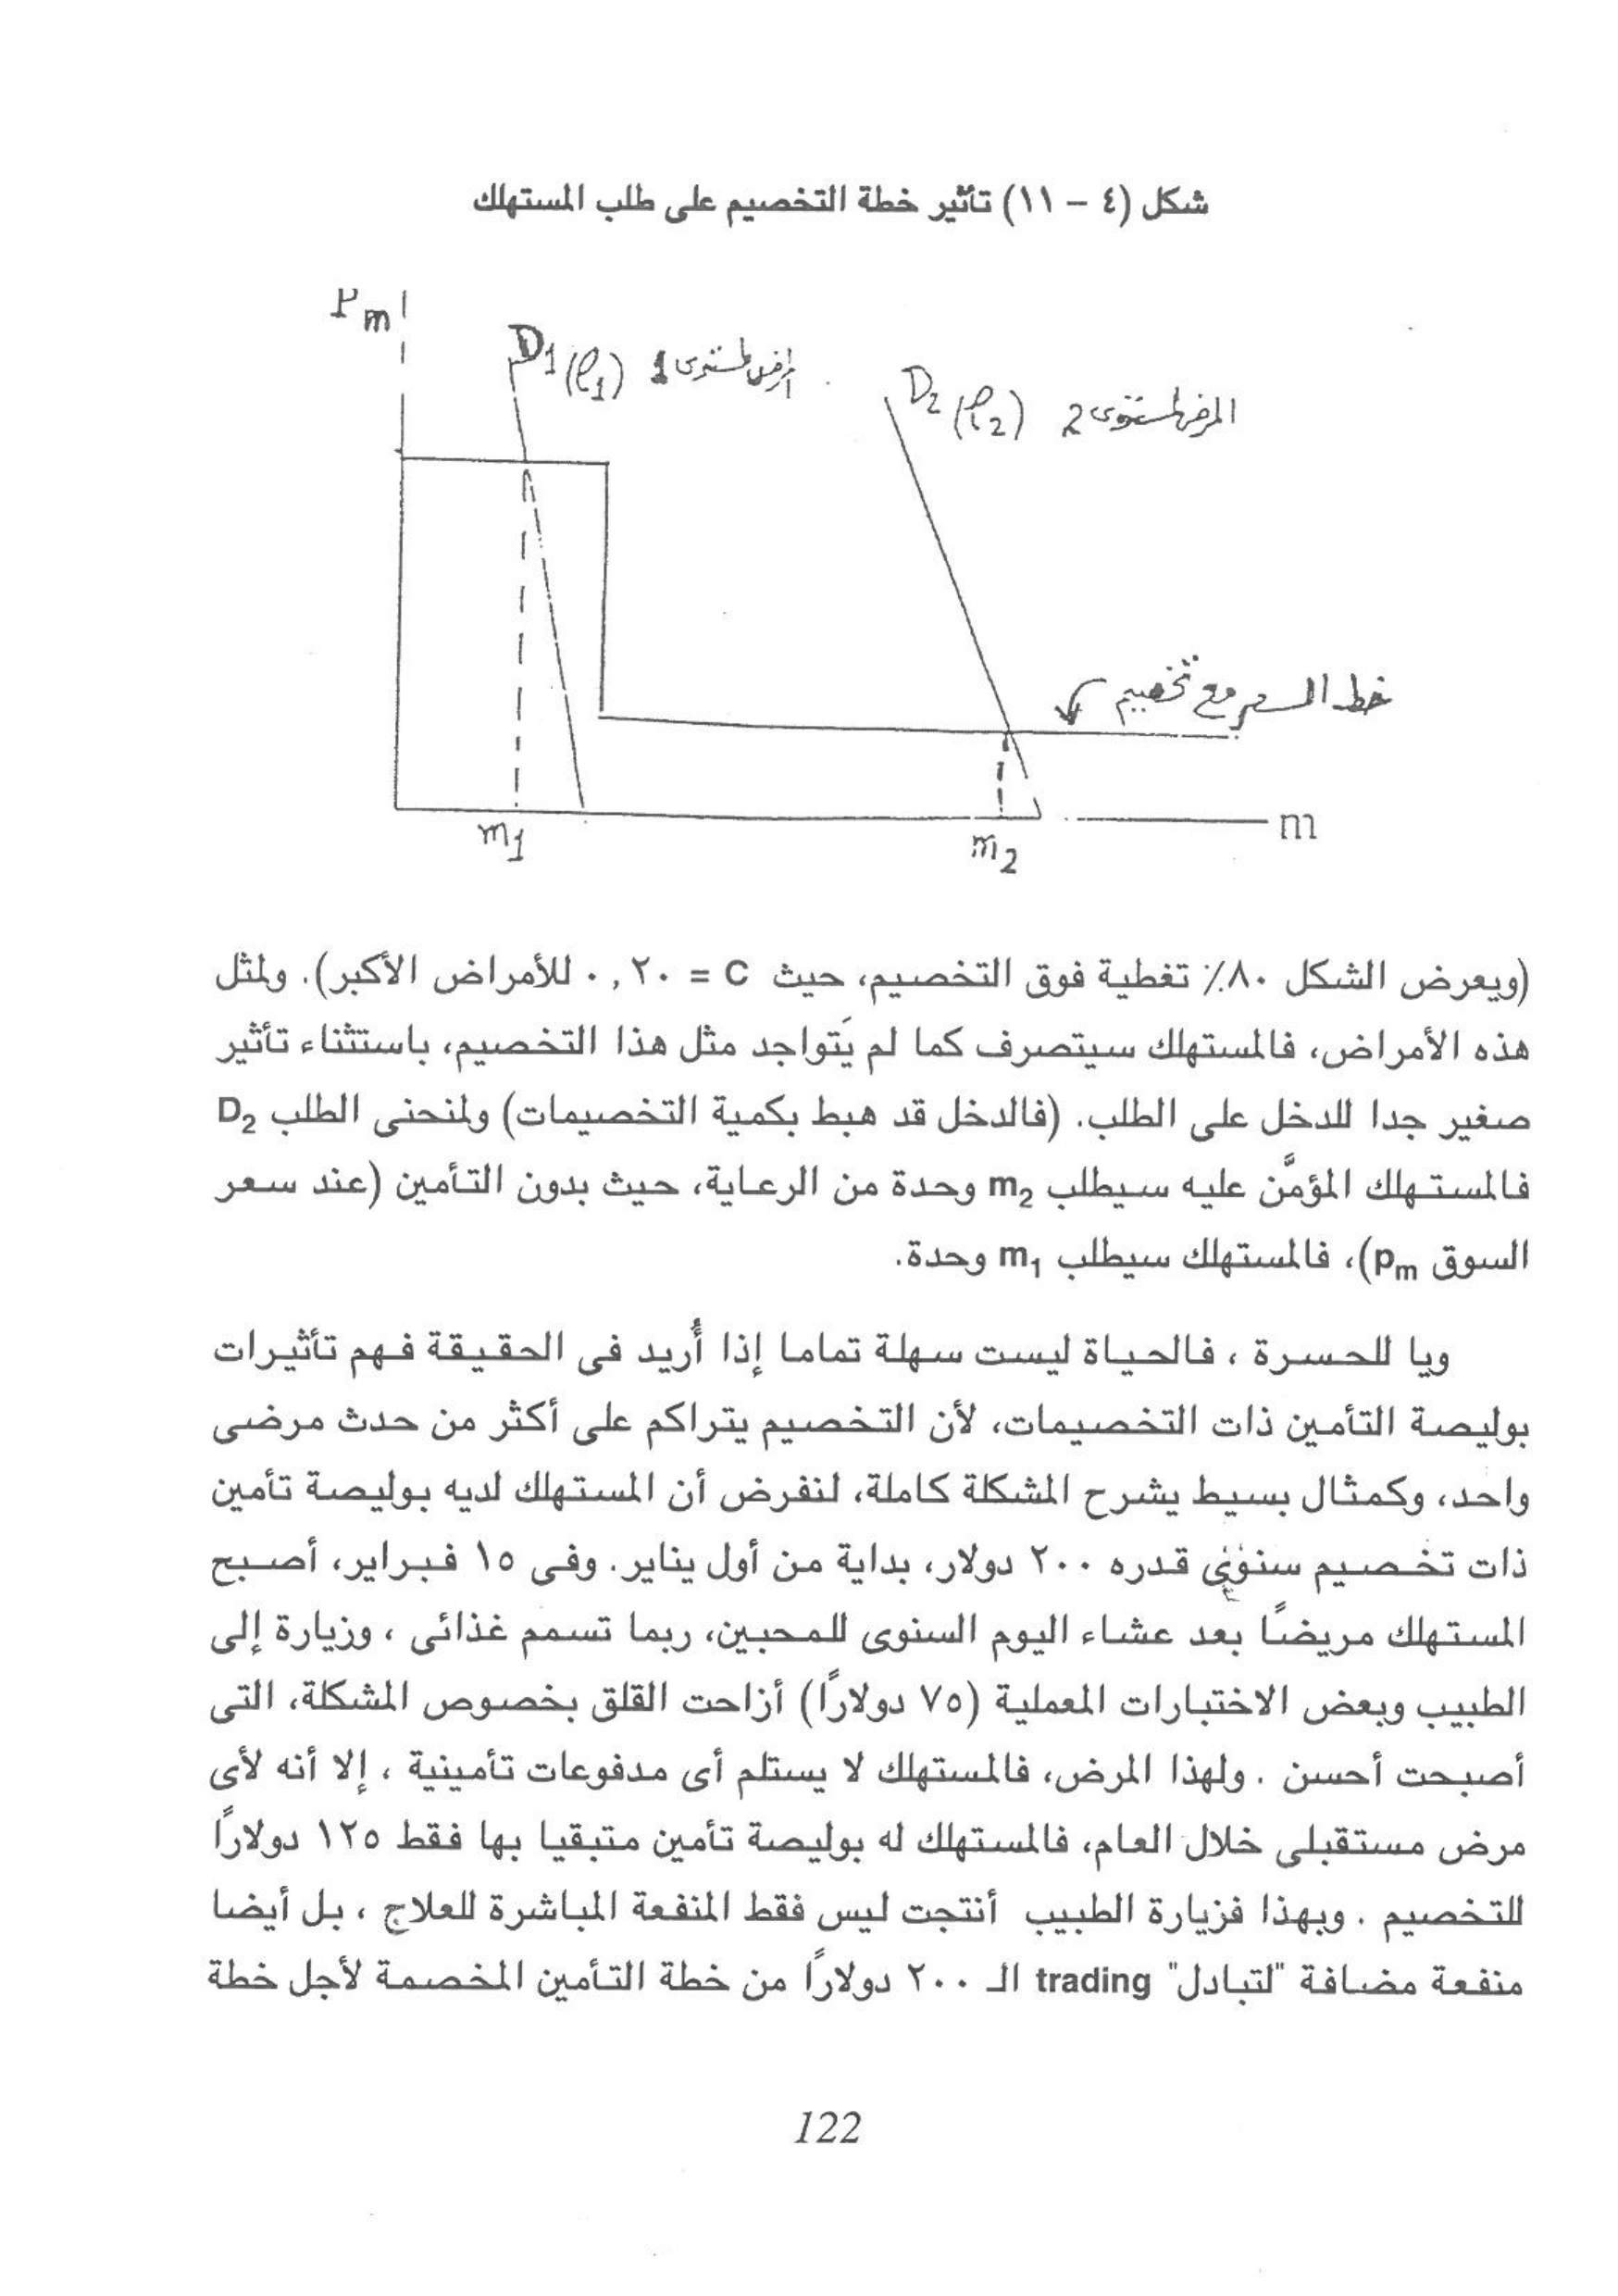 شكل (٤ – ١١) تأثير خطة التخصيم على طلب المستهلك
Pm
D1(ℓ1) المرض لمستوى 1
D2(ℓ2) المرض لمستوى 2
خط السعر مع تخصيم
m1
m2
m
(ويعرض الشكل ٨٠٪ تغطية فوق التخصيم، حيث C = ٠,٢٠ للأمراض الأكبر). ولمثل
هذه الأمراض، فالمستهلك سيتصرف كما لم يَتواجد مثل هذا التخصيم، باستثناء تأثير
صغير جدا للدخل على الطلب. (فالدخل قد هبط بكمية التخصيمات) ولمنحنى الطلب D2
فالمستهلك المؤمَّن عليه سيطلب m2 وحدة من الرعاية، حيث بدون التأمين (عند سعر
السوق pm)، فالمستهلك سيطلب m1 وحدة.
ويا للحسرة ، فالحياة ليست سهلة تماما إذا أُريد فى الحقيقة فهم تأثيرات
بوليصة التأمين ذات التخصيمات، لأن التخصيم يتراكم على أكثر من حدث مرضى
واحد، وكمثال بسيط يشرح المشكلة كاملة، لنفرض أن المستهلك لديه بوليصة تأمين
ذات تخصيم سنوى قدره ٢٠٠ دولار، بداية من أول يناير. وفى ١٥ فبراير، أصبح
المستهلك مريضًا بعد عشاء اليوم السنوى للمحبين، ربما تسمم غذائى ، وزيارة إلى
الطبيب وبعض الاختبارات المعملية (٧٥ دولارًا) أزاحت القلق بخصوص المشكلة، التى
أصبحت أحسن . ولهذا المرض، فالمستهلك لا يستلم أى مدفوعات تأمينية ، إلا أنه لأى
مرض مستقبلى خلال العام، فالمستهلك له بوليصة تأمين متبقيا بها فقط ١٢٥ دولارًا
للتخصيم . وبهذا فزيارة الطبيب أنتجت ليس فقط المنفعة المباشرة للعلاج ، بل أيضا
منفعة مضافة "لتبادل" trading الـ ٢٠٠ دولارًا من خطة التأمين المخصمة لأجل خطة
122